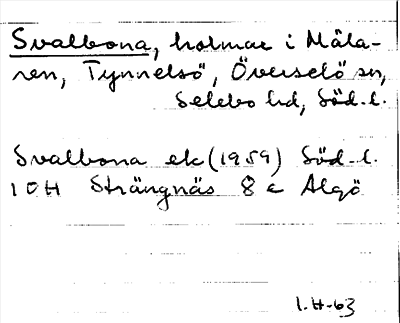 Svalbona, holmar i Mäla-
ren, Tynnelsö, Överselö sn,
Selebo hd, Söd. l.
Svalbona ek (1959) Söd. l.
10H Strängnäs 8 c Algö
1.H-63